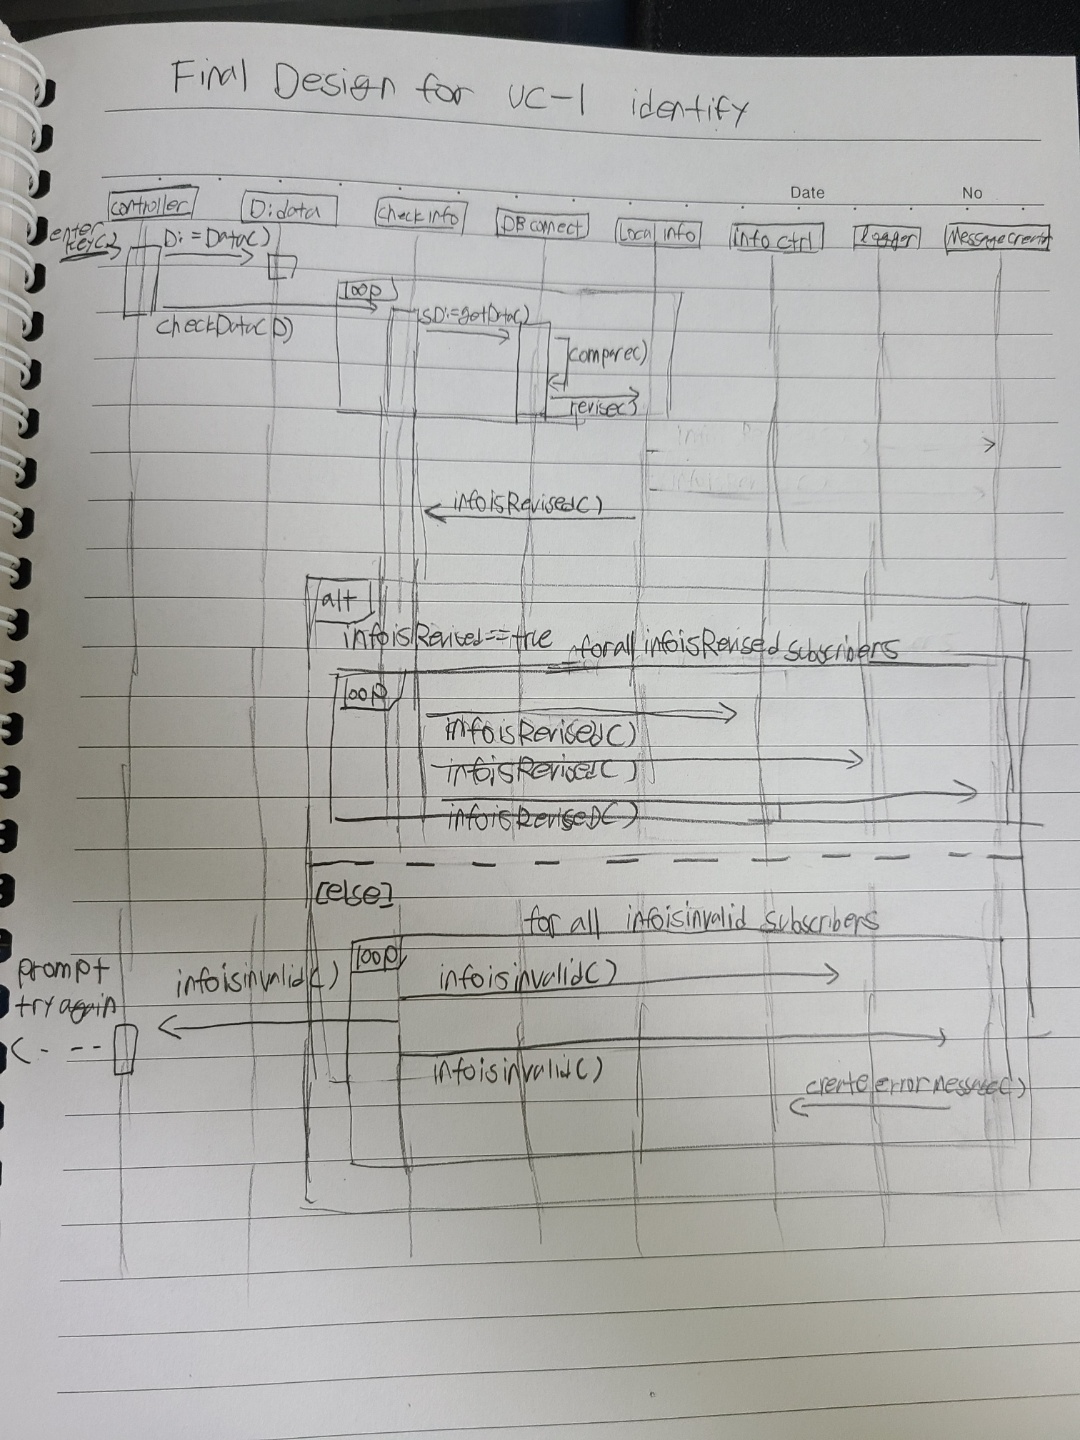 Final Design for UC-1 identify
Date No
controller
D:data
checkinfo
DBconnect
Local info
info ctrl
logger
enter
key()
D:=Data()
loop
checkData(D)
SD:=getData()
compare()
revise()
infoisRevised()
alt
infoisRevised==true
for all infoisRevised subscribers
loop
infoisRevised()
infoisRevised()
infoisRevised()
[else]
for all infoisinvalid subscribers
loop
prompt
try again
infoisinvalid()
infoisinvalid()
infoisinvalid()
create error message()